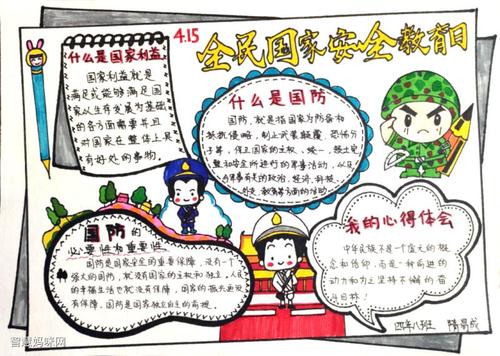 4.15
全民国家安全教育日
什么是国家利益
国家利益就是
满足或能够满足国
家以生存发展为基础
的各方面需要并且
对国家在整体上具
有好处的事物。
什么是国防
国防,就是指国家为防备和
抵抗侵略,制止武装颠覆,
保卫国家的主权、统一、领土完
整和安全所进行的军事活动,以及
与军事有关的政治、经济、科技、
外交、教育等方面的活动。
国防的
必要性和重要性
国防是国家安全的重要保障,没有一个
强大的国防,就没有国家的主权和独立,人民
的幸福生活也就没有保障,国家的振兴更没
有保障,国防是国家独立自主的前提。
我的心得体会
中华民族不是一个虚无的概
念和信仰,而是一种前进的
动力和力主坚持不懈的奋
斗目标!
四年八班
智慧妈咪网